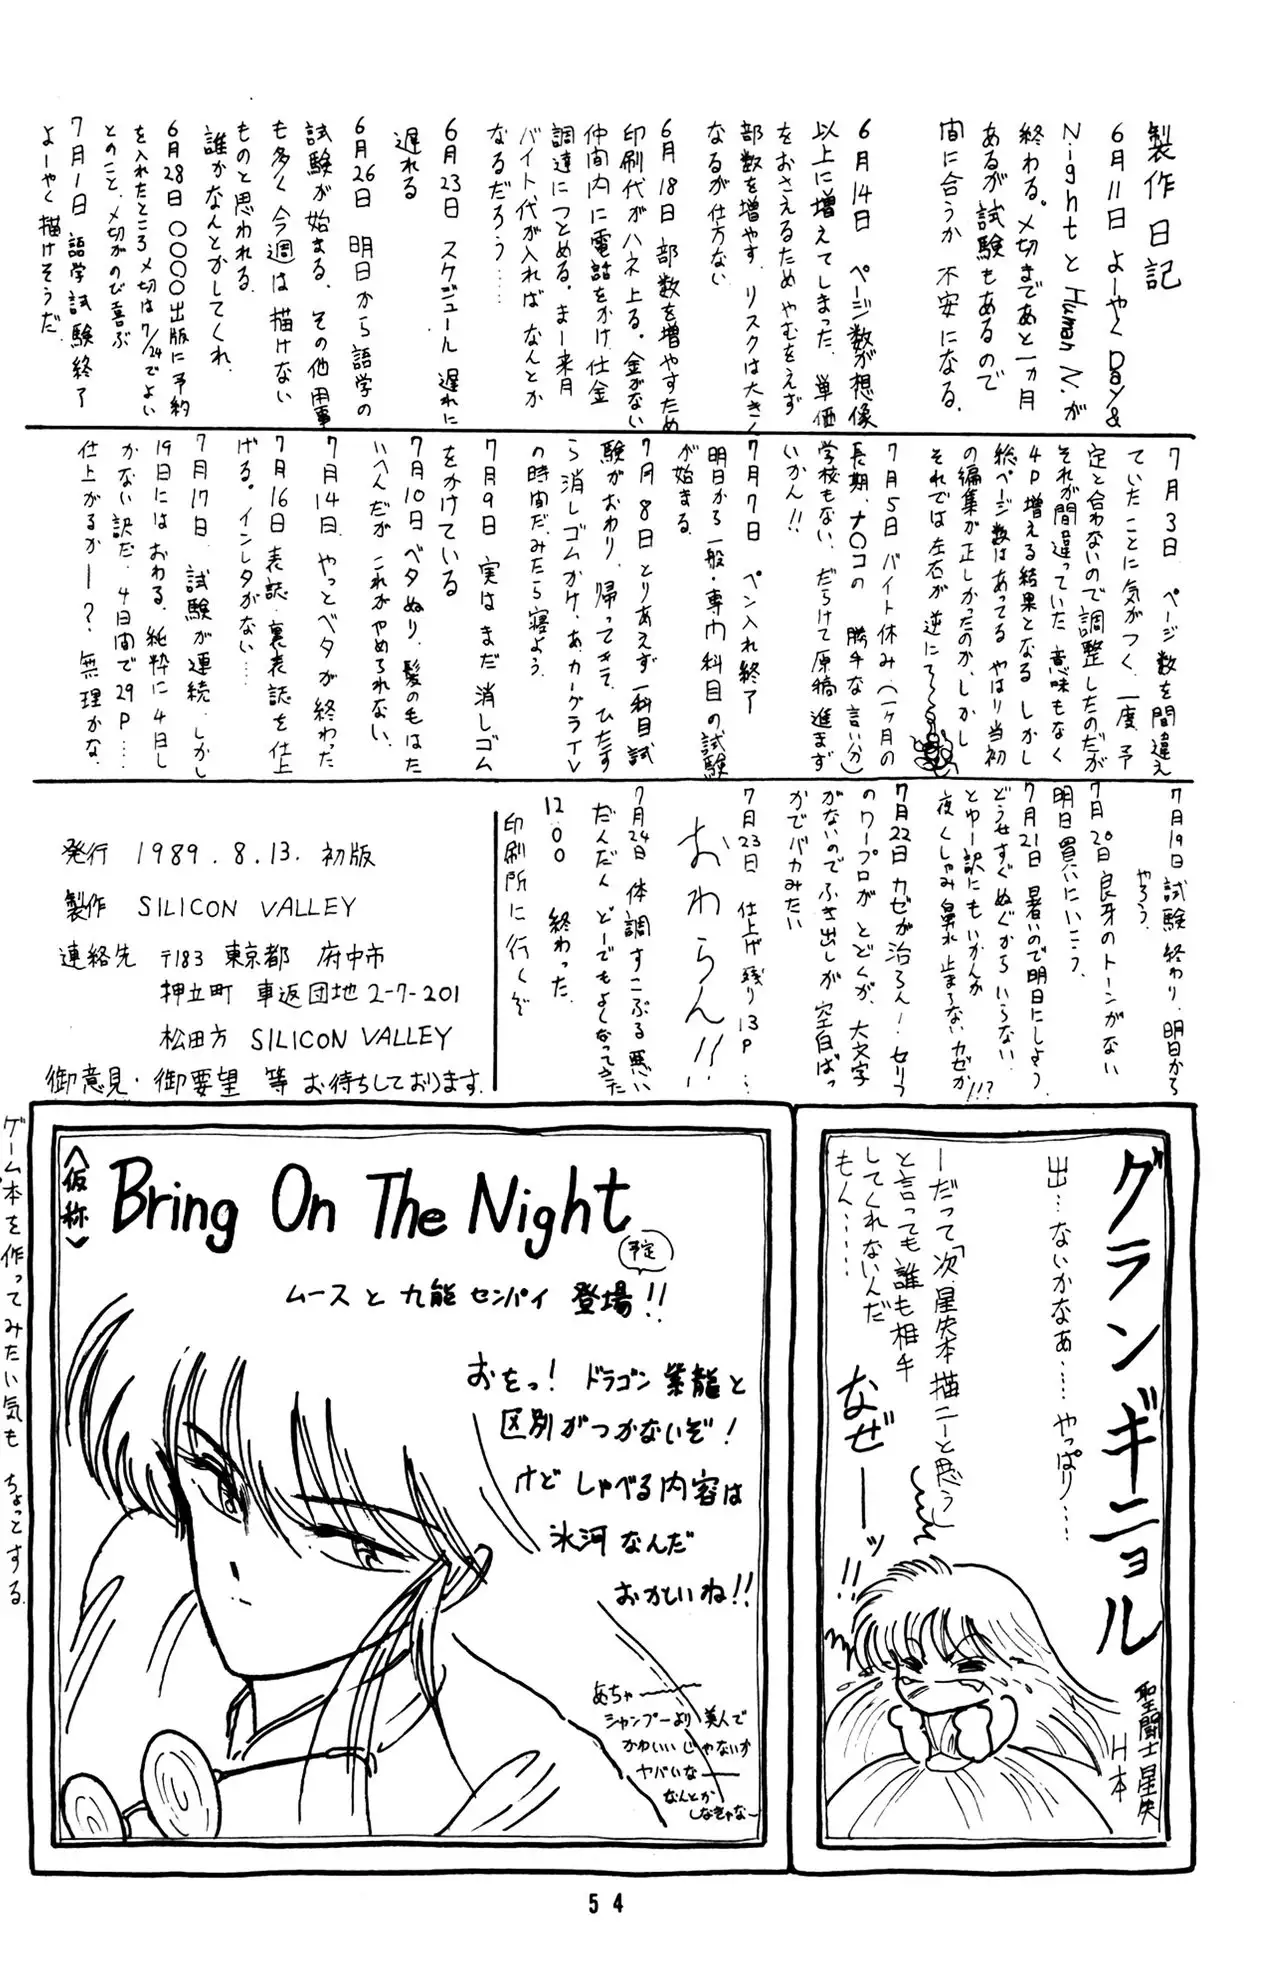 製作日記
6月11日 よーやくDay&
NightとHuman N.が
終わる。〆切まであと一ヵ月
あるが試験もあるので
間に合うか 不安になる。
6月14日 ページ数が想像
以上に増えてしまった。単価
をおさえるため やむをえず
部数を増やす。リスクは大きく
なるが仕方ない
6月18日 部数を増やすため
印刷代がハネ上る。金がない
仲間内に電話をかけ、仕金
調達につとめる。まー来月
バイト代が入れば なんとか
なるだろう…
6月23日 スケジュール 遅れに
遅れる
6月26日 明日から語学の
試験が始まる。その他用事
も多く 今週は描けない
ものと思われる
誰かなんとかしてくれ
6月28日 〇〇〇〇出版に予約
を入れたところ〆切は7/24でよい
とのこと、〆切がのび喜ぶ
7月1日 語学試験終了
よーやく描けそうだ
7月3日 ページ数を間違え
ていたことに気がつく、一度、予
定と合わないので調整したのだが
それが間違っていた 意味もなく
4P増える結果となる しかし
総ページ数はあってる やはり当初
の編集が正しかったのか、しかし
それでは左右が逆にて〜
7月5日 バイト休み(一ヶ月の
長期、ナ〇コの 勝手な言い分)
学校もない、だらけて原稿進まず
いかん!!
7月7日 ペン入れ終了
明日から一般・専門科目の試験
が始まる
7月8日 とりあえず一科目試
験がおわり、帰ってきて、ひたす
ら消しゴムかけ、あ、カーグラTV
の時間だ、みたら寝よう
7月9日 実はまだ消しゴム
をかけている
7月10日 ベタぬり、髪の毛はた
いへんだが これがやめられない、
7月14日、やっとベタが終わった
7月16日 表誌・裏表誌を仕上
げる。インレタがない…
7月17日、試験が連続、しかし
19日にはおわる、純粋に4日し
かない訳だ、4日間で29P……
仕上がるかー?無理かな、
7月19日 試験終わり、明日から
やろう
7月20日 良牙のトーンがない
明日買いにいこう
7月21日 暑いので明日にしよう
どうせすぐぬぐからいらない
とゆー訳にもいかんか!!?
夜くしゃみ鼻水止まらないカゼか
7月22日 カゼが治らん!セリフ
のワープロがとどくが、大文字
がないのでふき出しが空白ばっ
かでバカみたい
7月23日 仕上げ残り13P…
おわらん!!
7月24日 体調すこぶる悪い
だんだんどーでもよくなってきた
12:00 終わった
印刷所に行くぞ
発行 1989.8.13. 初版
製作 SILICON VALLEY
連絡先 〒183 東京都 府中市
押立町 車返団地2-7-201
松田方 SILICON VALLEY
御意見・御要望 等 お待ちしております.
グランギニョル
聖闘士星矢
H本
出…ないかなあ……やっぱり……
ーだって「次、星矢本描こーと思う」
と言っても誰も相手
してくれないんだ
もん……
なぜーーッ!!
〈仮称〉
Bring On The Night
予定
ムースと九能センパイ 登場!!
おをっ! ドラゴン紫龍と
区別がつかないぞ!
けど しゃべる内容は
氷河なんだ
おかしいね!!
あちゃーー
シャンプーより美人で
かわいいじゃないか
ヤバいなー
なんとか
しなきゃなー
ゲーム本を作ってみたい気も ちょっとする
54